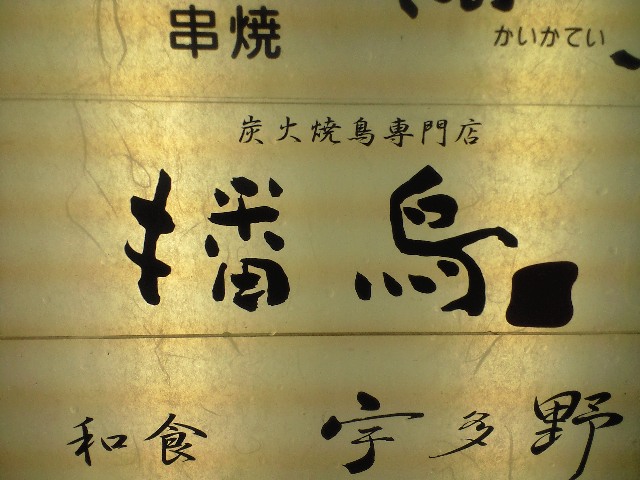 串焼 かいかてい
炭火焼鳥專門店
播鳥
和食 宇多野